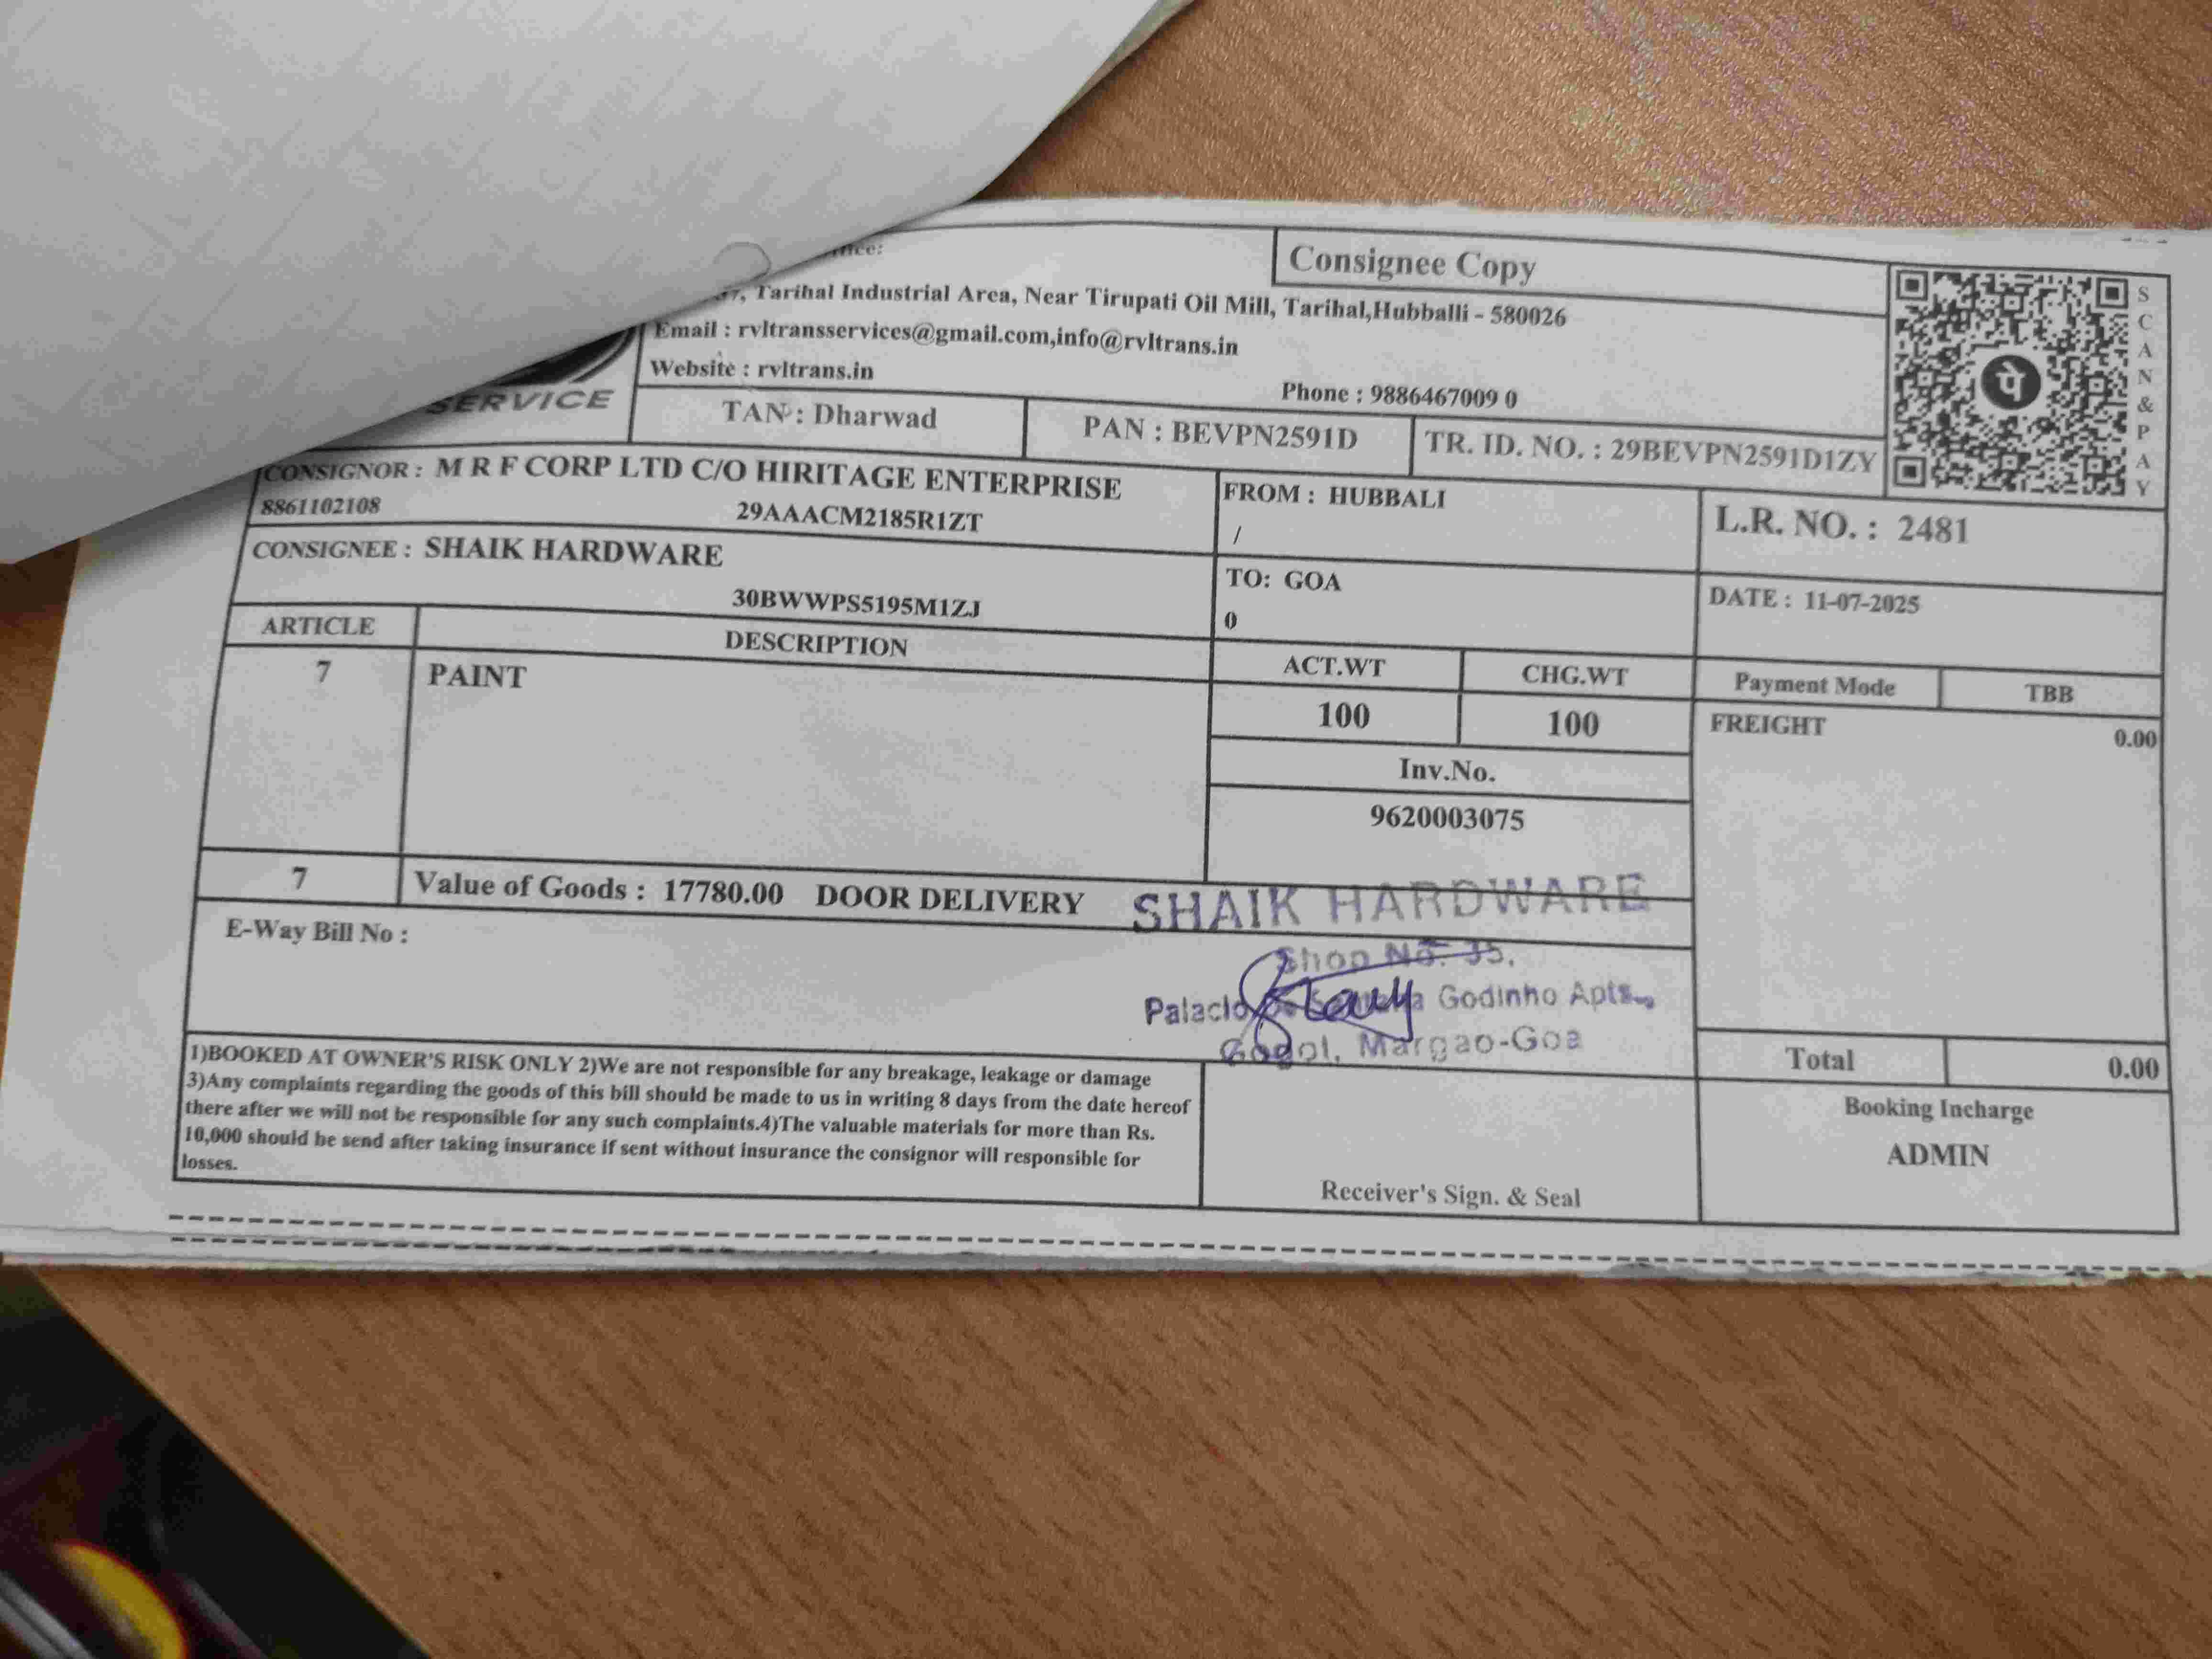 Consignee Copy
Tarihal Industrial Area, Near Tirupati Oil Mill, Tarihal,Hubballi - 580026
Email : rvltransservices@gmail.com,info@rvltrans.in
Website : rvltrans.in
Phone : 9886467009 0
SERVICE
TAN : Dharwad
PAN : BEVPN2591D
TR. ID. NO. : 29BEVPN2591D1ZY
SCAN&PAY
पे
CONSIGNOR : M R F CORP LTD C/O HIRITAGE ENTERPRISE
8861102108 29AAACM2185R1ZT
FROM : HUBBALI
/
L.R. NO. : 2481
CONSIGNEE : SHAIK HARDWARE
30BWWPS5195M1ZJ
TO: GOA
0
DATE : 11-07-2025
ARTICLE DESCRIPTION ACT.WT CHG.WT Payment Mode TBB
7 PAINT 100 100 FREIGHT 0.00
Inv.No.
9620003075
7 Value of Goods : 17780.00 DOOR DELIVERY
E-Way Bill No :
SHAIK HARDWARE
Shop No. 35,
Palacio Godinho Apts.,
Gogol, Margao-Goa
Total 0.00
1)BOOKED AT OWNER'S RISK ONLY 2)We are not responsible for any breakage, leakage or damage
3)Any complaints regarding the goods of this bill should be made to us in writing 8 days from the date hereof
there after we will not be responsible for any such complaints.4)The valuable materials for more than Rs.
10,000 should be send after taking insurance if sent without insurance the consignor will responsible for
losses.
Receiver's Sign. & Seal
Booking Incharge
ADMIN